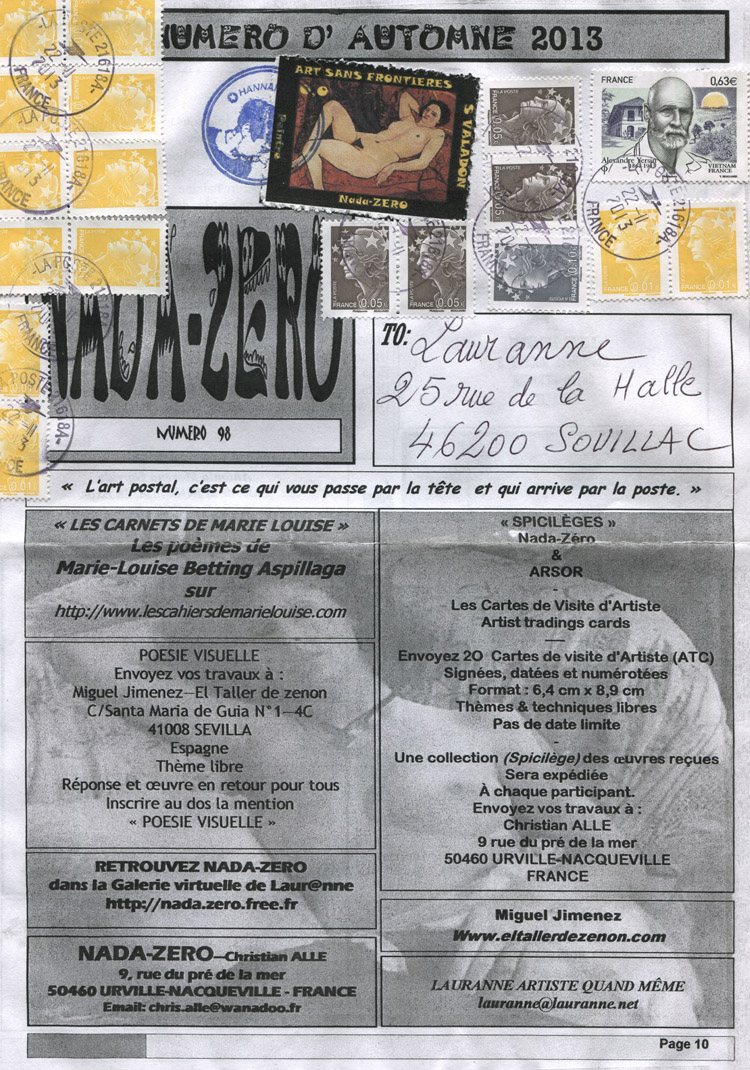 NUMERO D' AUTOMNE 2013
LA POSTE 21618A
22-11
2013
FRANCE
HANNA
ART SANS FRONTIERES
S VALADON
Peintre
Nada-ZERO
LA POSTE
FRANCE 0,05€
FRANCE 0,63€
Alexandre Yersin
1863-1943
VIETNAM
FRANCE
FRANCE 0.01€
NADA-ZERO
NUMERO 98
TO:
Lauranne
25 rue de la Halle
46200 SOUILLAC
« L'art postal, c'est ce qui vous passe par la tête et qui arrive par la poste. »
« LES CARNETS DE MARIE LOUISE »
Les poèmes de
Marie-Louise Betting Aspillaga
sur
http://www.lescahiersdemarielouise.com
POESIE VISUELLE
Envoyez vos travaux à :
Miguel Jimenez—El Taller de zenon
C/Santa Maria de Guia N°1—4C
41008 SEVILLA
Espagne
Thème libre
Réponse et œuvre en retour pour tous
Inscrire au dos la mention
« POESIE VISUELLE »
RETROUVEZ NADA-ZERO
dans la Galerie virtuelle de Laur@nne
http://nada.zero.free.fr
NADA-ZERO—Christian ALLE
9, rue du pré de la mer
50460 URVILLE-NACQUEVILLE - FRANCE
Email: chris.alle@wanadoo.fr
« SPICILÈGES »
Nada-Zéro
&
ARSOR
-
Les Cartes de Visite d'Artiste
Artist tradings cards
—
Envoyez 2O Cartes de visite d'Artiste (ATC)
Signées, datées et numérotées
Format : 6,4 cm x 8,9 cm
Thèmes & techniques libres
Pas de date limite
-
Une collection (Spicilège) des œuvres reçues
Sera expédiée
À chaque participant.
Envoyez vos travaux à :
Christian ALLE
9 rue du pré de la mer
50460 URVILLE-NACQUEVILLE
FRANCE
Miguel Jimenez
Www.eltallerdezenon.com
LAURANNE ARTISTE QUAND MÊME
lauranne@lauranne.net
Page 10